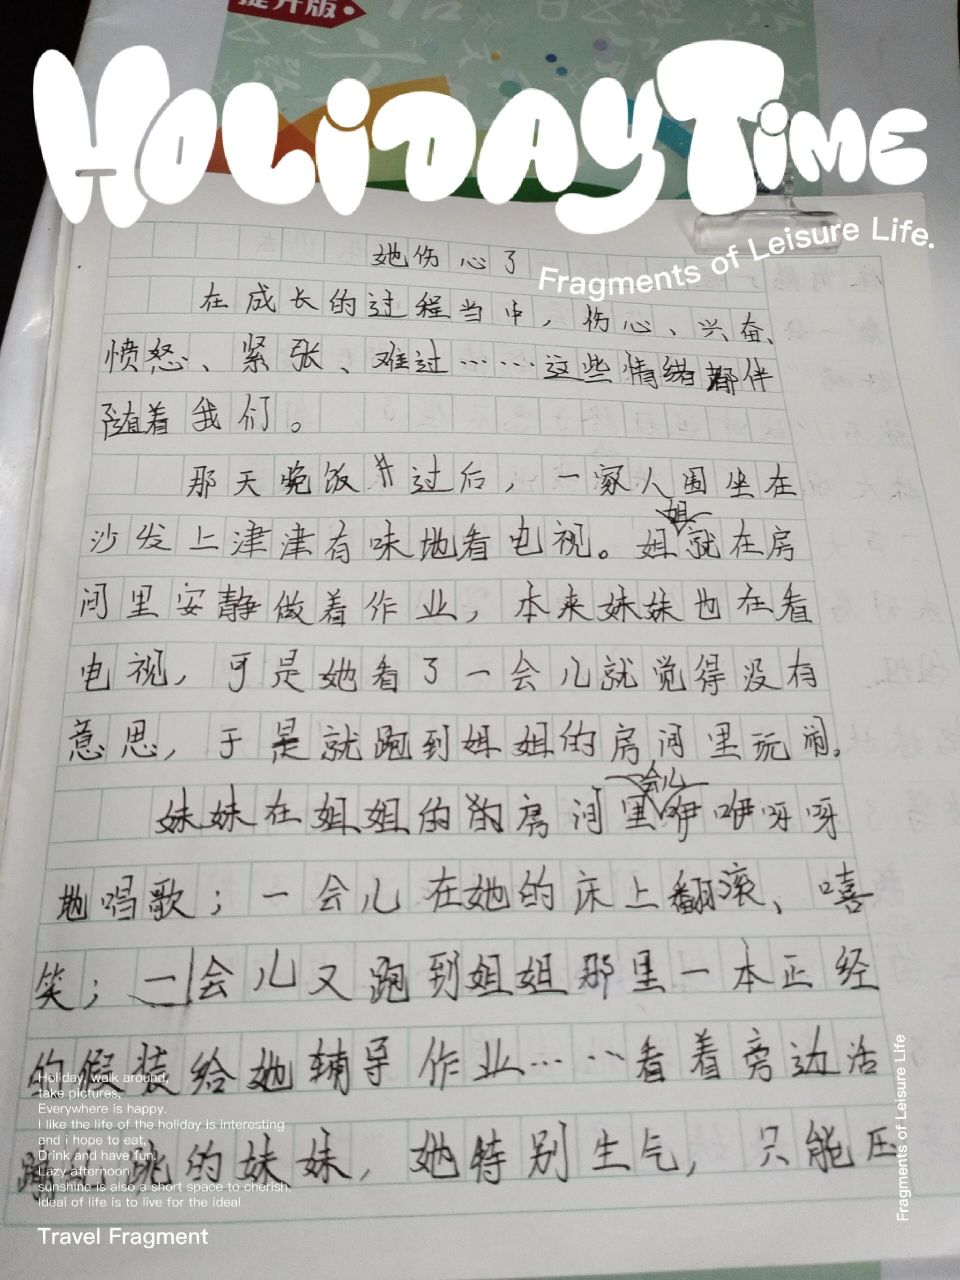 提升版
HOLIDAY TIME
Fragments of Leisure Life.
她伤心了
在成长的过程当中，伤心、兴奋、
愤怒、紧张、难过……这些情绪都伴
随着我们。
那天晚饭过后，一家人围坐在
沙发上津津有味地看电视。姐姐就在房
间里安静做着作业，本来妹妹也在看
电视，可是她看了一会儿就觉得没有
意思，于是就跑到姐姐的房间里玩闹。
妹妹在姐姐的的房间里一会儿咿咿呀呀
地唱歌；一会儿在她的床上翻滚、嘻
笑；一会儿又跑到姐姐那里一本正经
的假装给她辅导作业……看着旁边活
的妹妹，她特别生气，只能压
Holiday, walk around,
take pictures,
Everywhere is happy.
I like the life of the holiday is interesting
and i hope to eat,
Drink and have fun,
Lazy afternoon
sunshine is also a short space to cherish.
Ideal of life is to live for the ideal
Travel Fragment
Fragments of Leisure Life